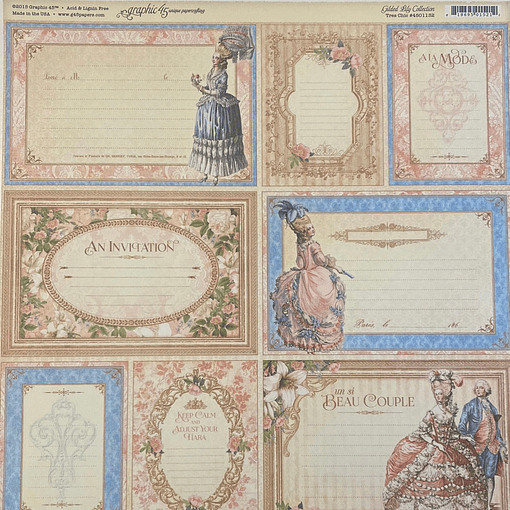 ©2015 Graphic 45™ • Acid & Lignin Free
Made in the USA. • www.g45papers.com
graphic 45 unique papercrafting
Gilded Lily Collection
Tres Chic #4501152
Livré à M.
le
À LA MODE
AN INVITATION
Paris, le
un si
BEAU COUPLE
KEEP CALM
AND
ADJUST YOUR
TIARA